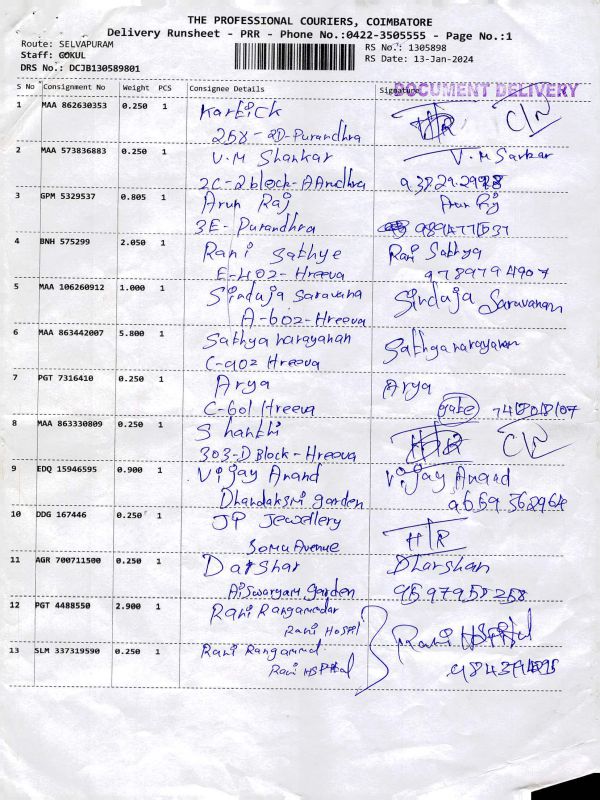 THE PROFESSIONAL COURIERS, COIMBATORE
Delivery Runsheet - PRR - Phone No.:0422-3505555 - Page No.:1
Route: SELVAPURAM
Staff: GOKUL
DRS No.: DCJB130589801
RS No.: 1305898
RS Date: 13-Jan-2024
S No Consignment No Weight PCS Consignee Details Signature
DOCUMENT DELIVERY
1 MAA 862630353 0.250 1 Kartick
258-2D-Purandhra
2 MAA 573836883 0.250 1 V.M Shankar V.M Sarkar
2C-2block-AAndhra
3 GPM 5329537 0.805 1 Arun Raj Arun Raj
3E- Purandhra
4 BNH 575299 2.050 1 Rani Sathye Rani Sathya
E-402-Hreeva 9789794907
5 MAA 106260912 1.000 1 Sindaja Saravana Sindaja Saravanan
A-602-Hreeva
6 MAA 863442007 5.800 1 Sathya narayanan Sathya narayanan
C-902 Hreeva
7 PGT 7316410 0.250 1 Arya Arya
C-601 Hreeva gate
8 MAA 863330809 0.250 1 Shanthi
303-D Block-Hreeva
9 EDQ 15946595 0.900 1 Vijay Anand Vijay Anand
Dhandaksmi garden
10 DDG 167446 0.250 1 JP Jewellery
Somu Avenue
11 AGR 700711500 0.250 1 Darshar Dharshan
Aiswaryam garden 9597958258
12 PGT 4488550 2.900 1 Rani
Rani Hospl
13 SLM 337319590 0.250 1 Rani
Rani